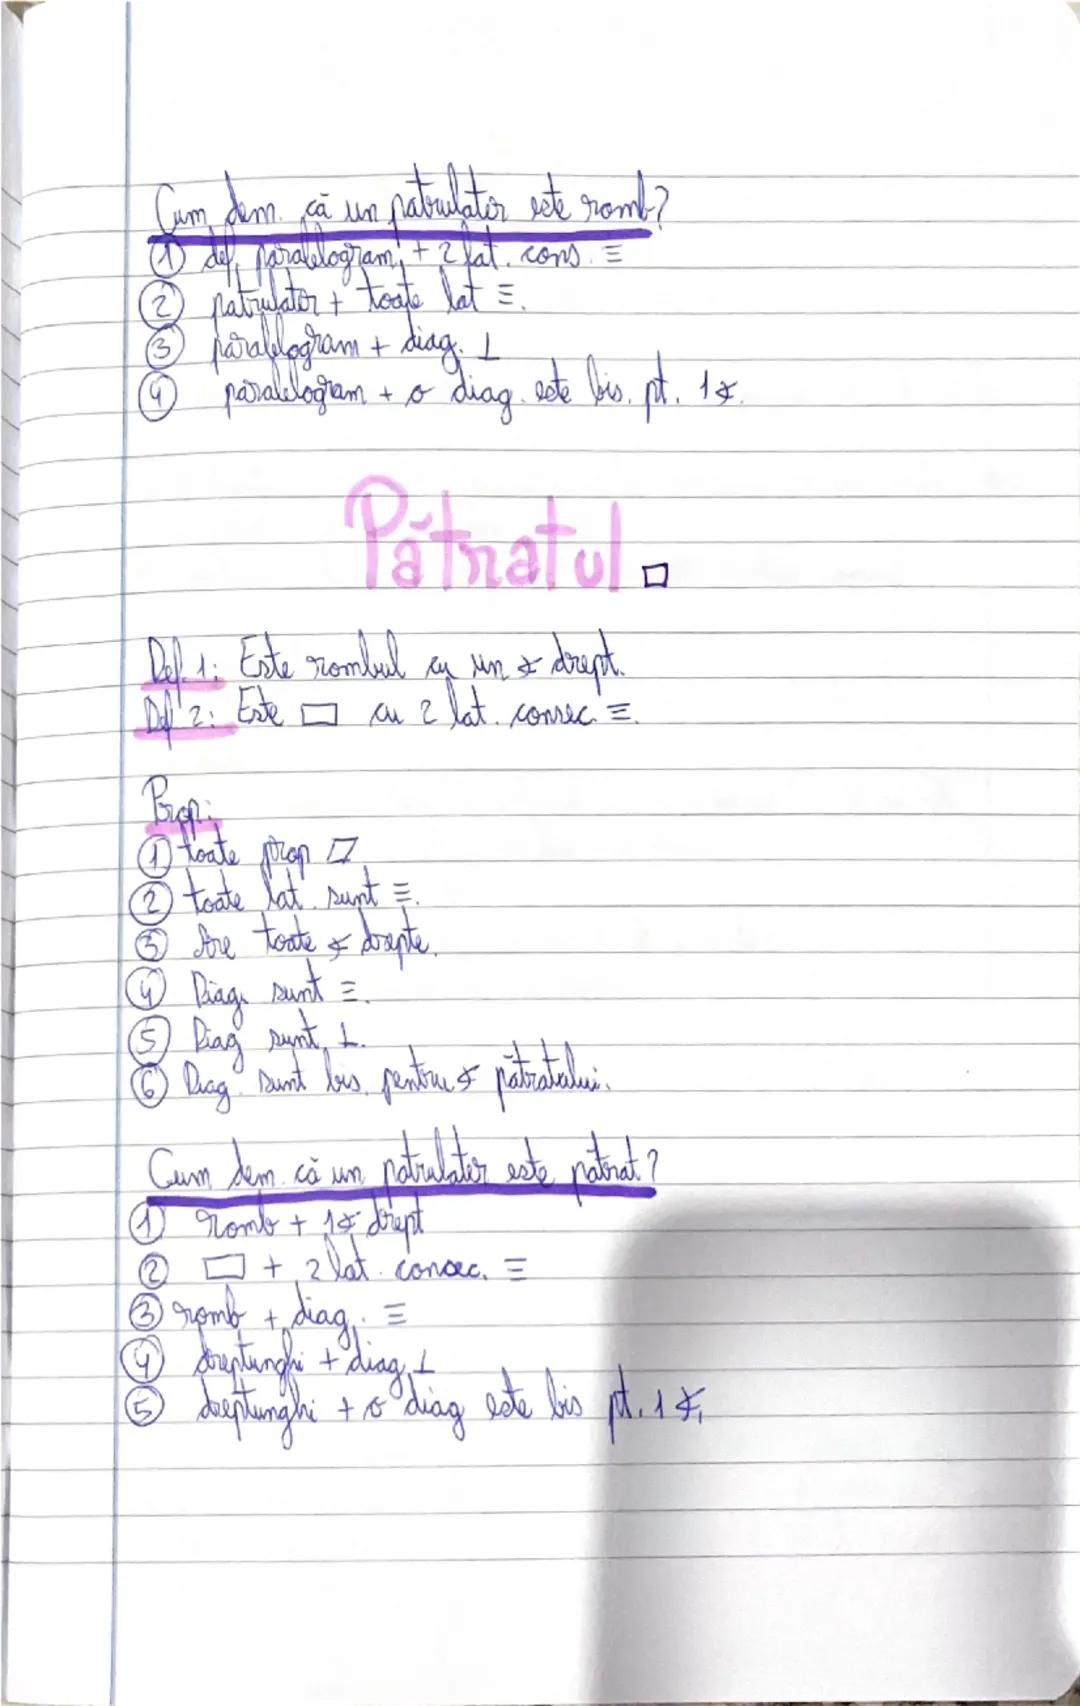 Cum dem. că un patrulater este romb?
① def. paralelogram + 2 lat. cons. ≡
② patrulater + toate lat ≡.
③ paralelogram + diag. ⊥
④ paralelogram + o diag. este bis. pt. 1 ∢.
Pătratul □
Def. 1: Este rombul cu un ∢ drept.
Def 2: Este ▭ cu 2 lat. consec. ≡.
Prop:
① toate prop ▱
② toate lat. sunt ≡.
③ Are toate ∢ drepte.
④ Diag. sunt ≡.
⑤ Diag sunt ⊥.
⑥ Diag. sunt bis. pentru ∢ pătratului.
Cum dem. că un patrulater este pătrat?
① romb + 1 ∢ drept
② ▭ + 2 lat. consec. ≡
③ romb + diag. ≡
④ dreptunghi + diag ⊥
⑤ dreptunghi + o diag este bis pt. 1 ∢.